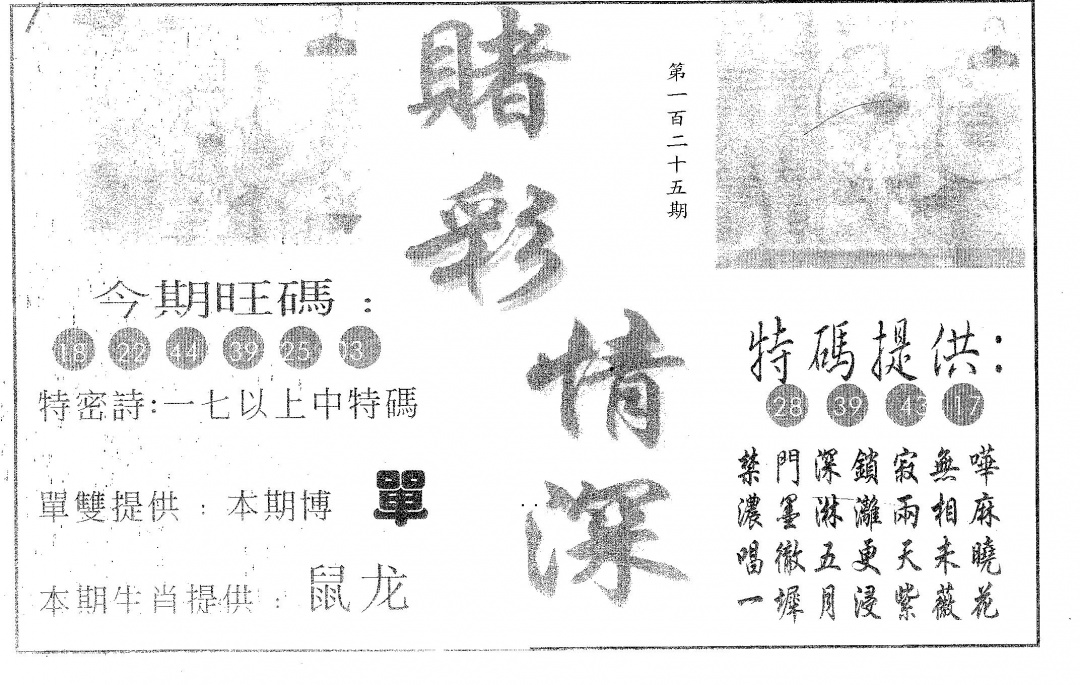 賭彩情深
第一百二十五期
今期旺碼：
18 22 44 39 25 03
特密詩:一七以上中特碼
單雙提供：本期博 單
本期生肖提供：鼠龙
特碼提供：
28 39 43 17
禁門深鎖寂無嘩
濃墨淋灕兩相麻
唱徹五更天未曉
一墀月浸紫薇花